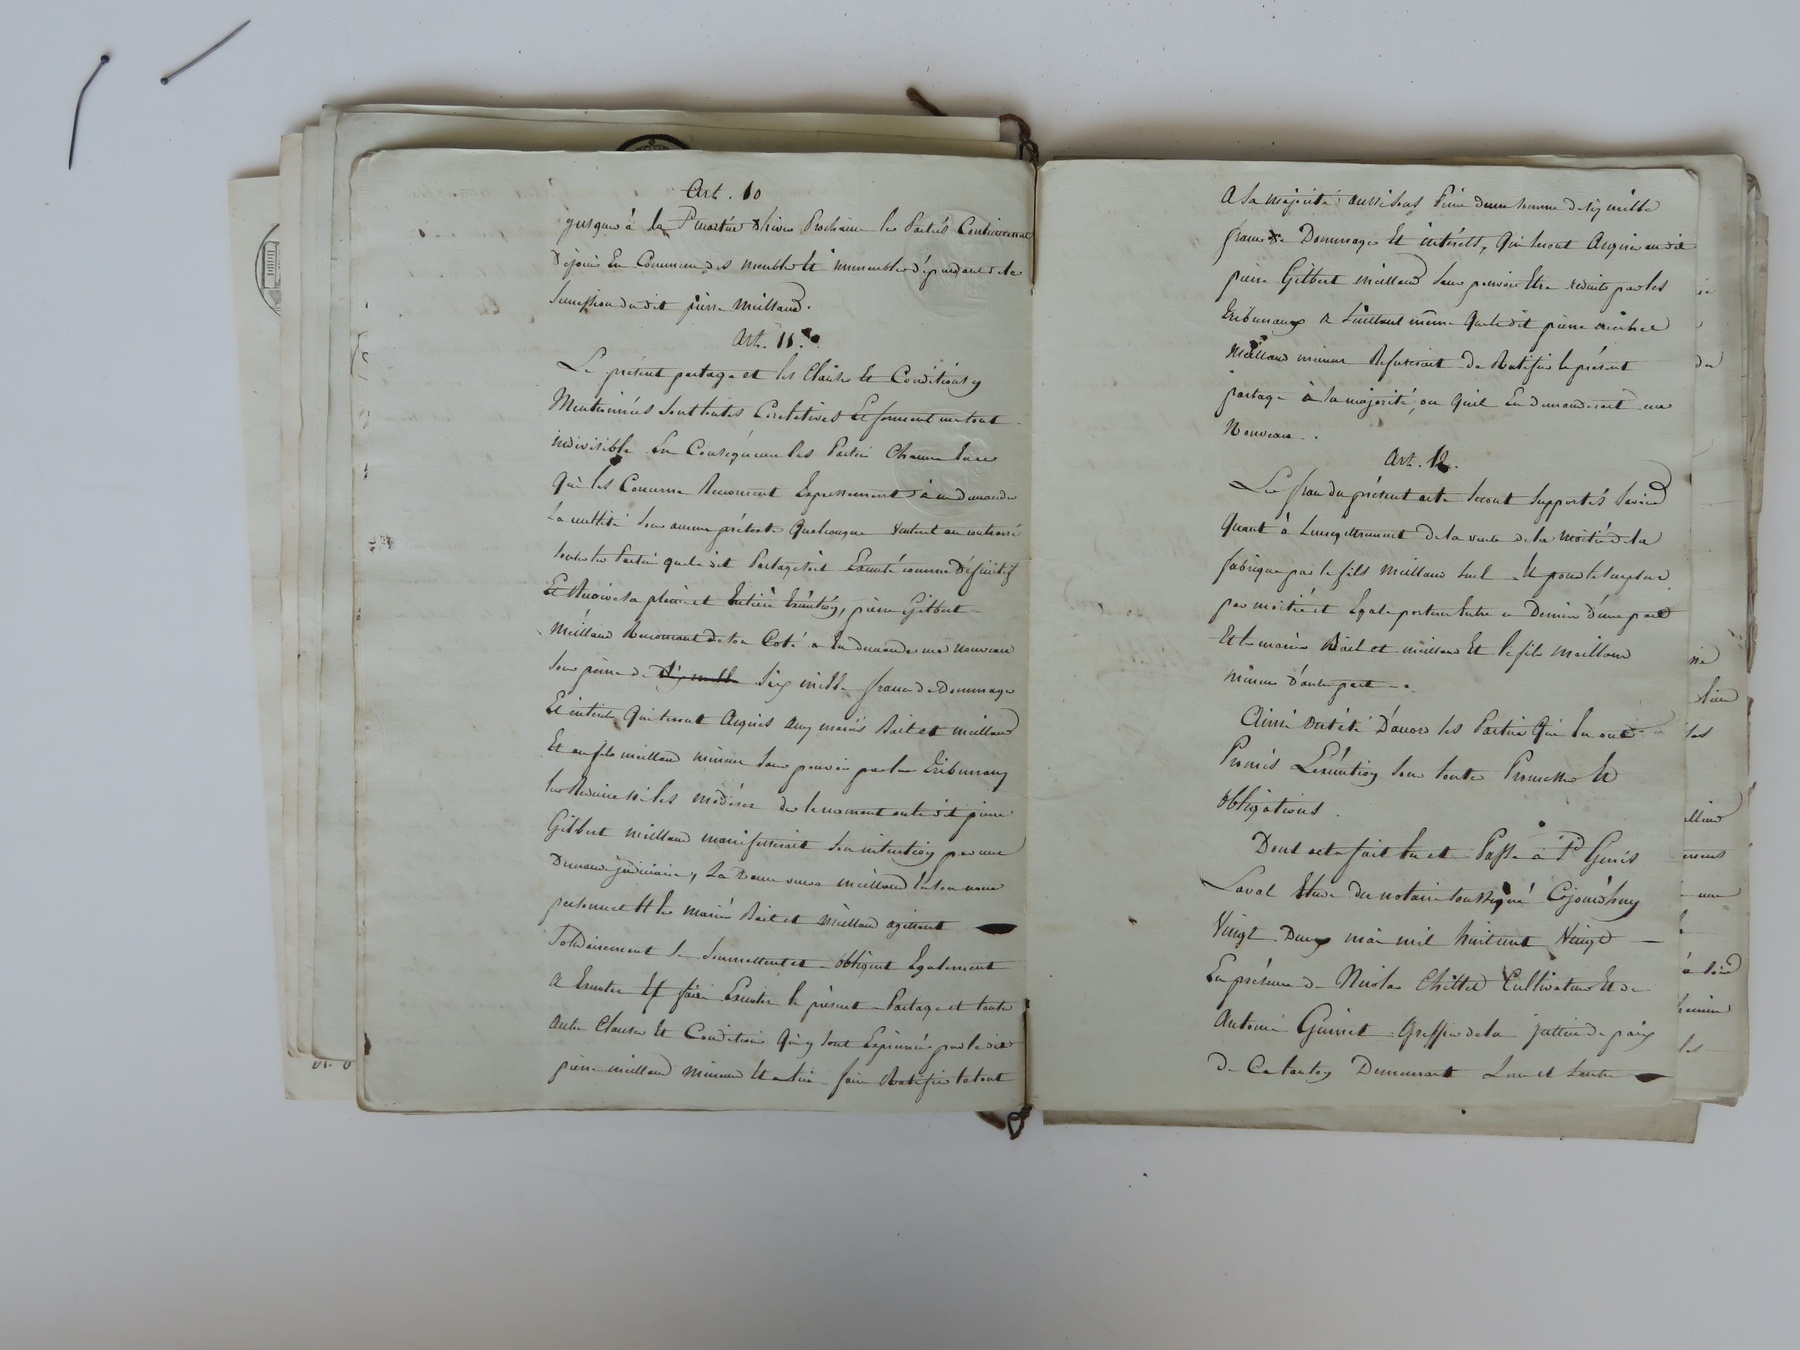 Art. 10
jusques à la St martin d'hiver Prochaine les Partiés Continueront
De jouir En Commun des meubles Et immeubles dépendants de la
Succession du dit pierre meilland.
Art. 11.
Le présent partage et les Clauses Et Conditions y
Mentionnées sont toutes Corelatives Et forment un tout
indivisible En Conséquence les Parties Chacune En ce
Qui les Concerne Renoncent Expressement à en demander
La nullité Sous aucun prétexte Quelconque voulant au contraire
toutes les Parties que le dit Partage soit Exécuté comme Définitif
Et Recoive sa pleine et Entière Exécution, pierre Gilbert
Meilland Renoncant de son Coté a En demander un nouveau
Sous peine de six mille francs de Dommages
Et interets Qui seront Acquis aux mariés Bait et meilland
Et au fils meilland mineur Sans pouvoir par les Tribunaux
les Reduire ni les modérer dès le moment ou le dit pierre
Gilbert meilland manifesterait son intention par une
Demande judiciaire, La Dame veuve meilland En son nom
personnel Et les mariés Bait et meilland agissant
Solidairement Se Soumettent et obligent Egalement
a Executer Et faire Executer le présent Partage et toute
autre Clauses Et Conditions Qui y Sont Exprimées par le dit
pierre meilland mineur Et a lui faire Ratifier le tout
A Sa majorité aussi sous Peine d'une somme de six mille
francs De Dommages Et intérêts, Qui Seront Acquis au dit
pierre Gilbert meilland Sans pouvoir Etre reduits par les
Tribunaux a L'instant même Que le dit pierre
Meilland mineur Refuserait de Ratifier le présent
partage à Sa majorité, ou Quil En demanderait un
Nouveau.
Art. 12.
Les frais du présent acte Seront Supportés Savoir
Quant à Lenregistrement de la vente de la moitié de la
fabrique par le fils Meilland Seul Et pour le Surplus
par moitié et Egale portion Entre ce Dernier d'une part
Et les mariés Bait et meilland Et le fils Meilland
mineur d'autre part.
Ainsi arrêté D'accord les Parties Qui En ont
Promis L'exécution Sous toutes Promesses Et
obligations.
Dont acte fait lu et Passé à St Genis
Laval Etude du notaire soussigné Cejourdhuy
Vingt Deux mai mil huit cent Vingt
En présence de Nicolas Chittel Cultivateur Et de
Antoine Guinet Greffier de la justice de paix
de Ce Canton Demeurant L'un et L'autre